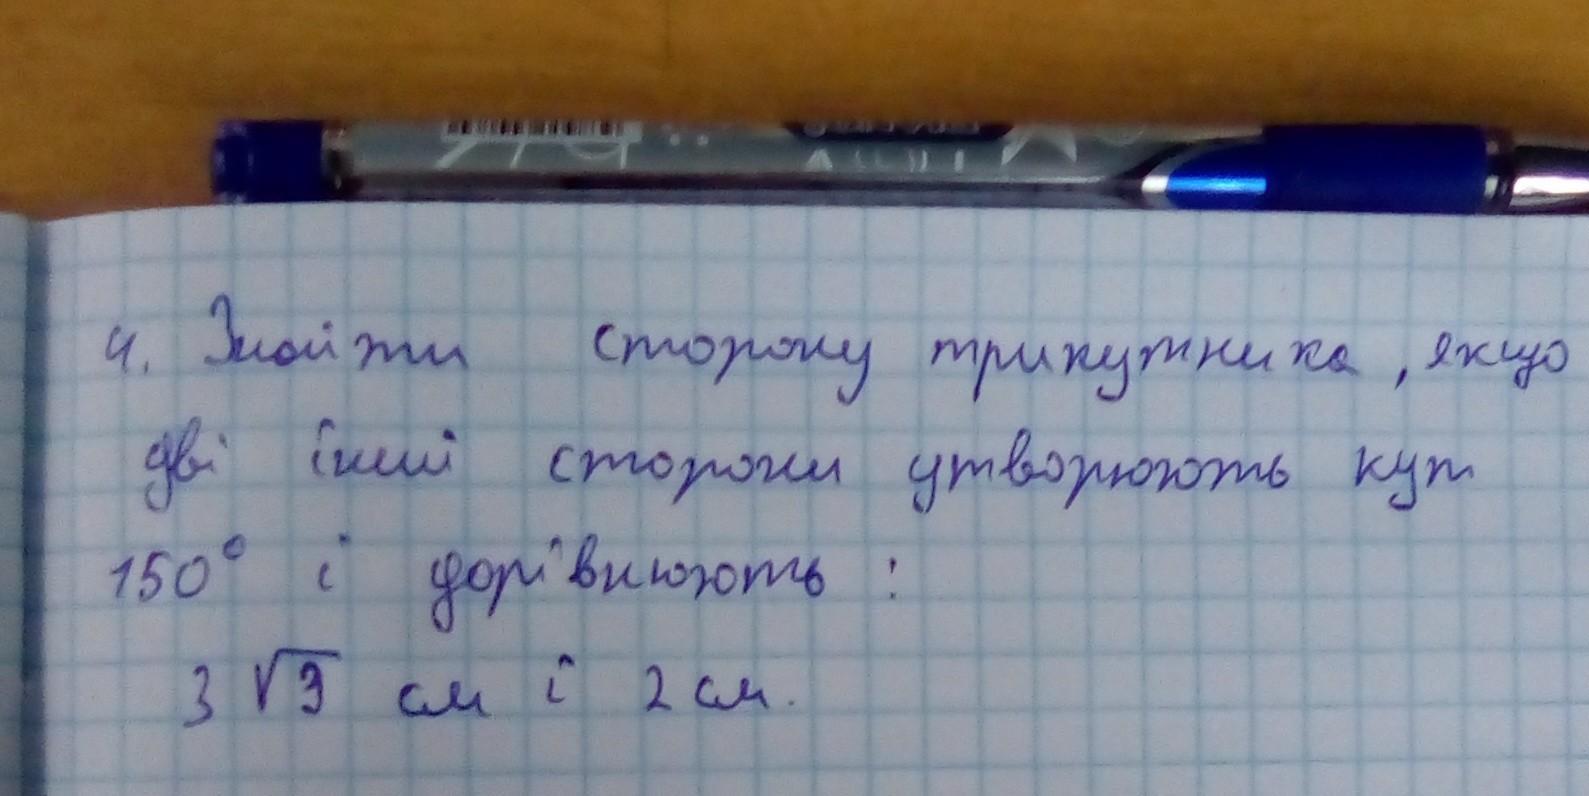 4. Знайти сторону трикутника, якщо
дві інші сторони утворюють кут
150° і дорівнюють:
3 √3 см і 2 см.